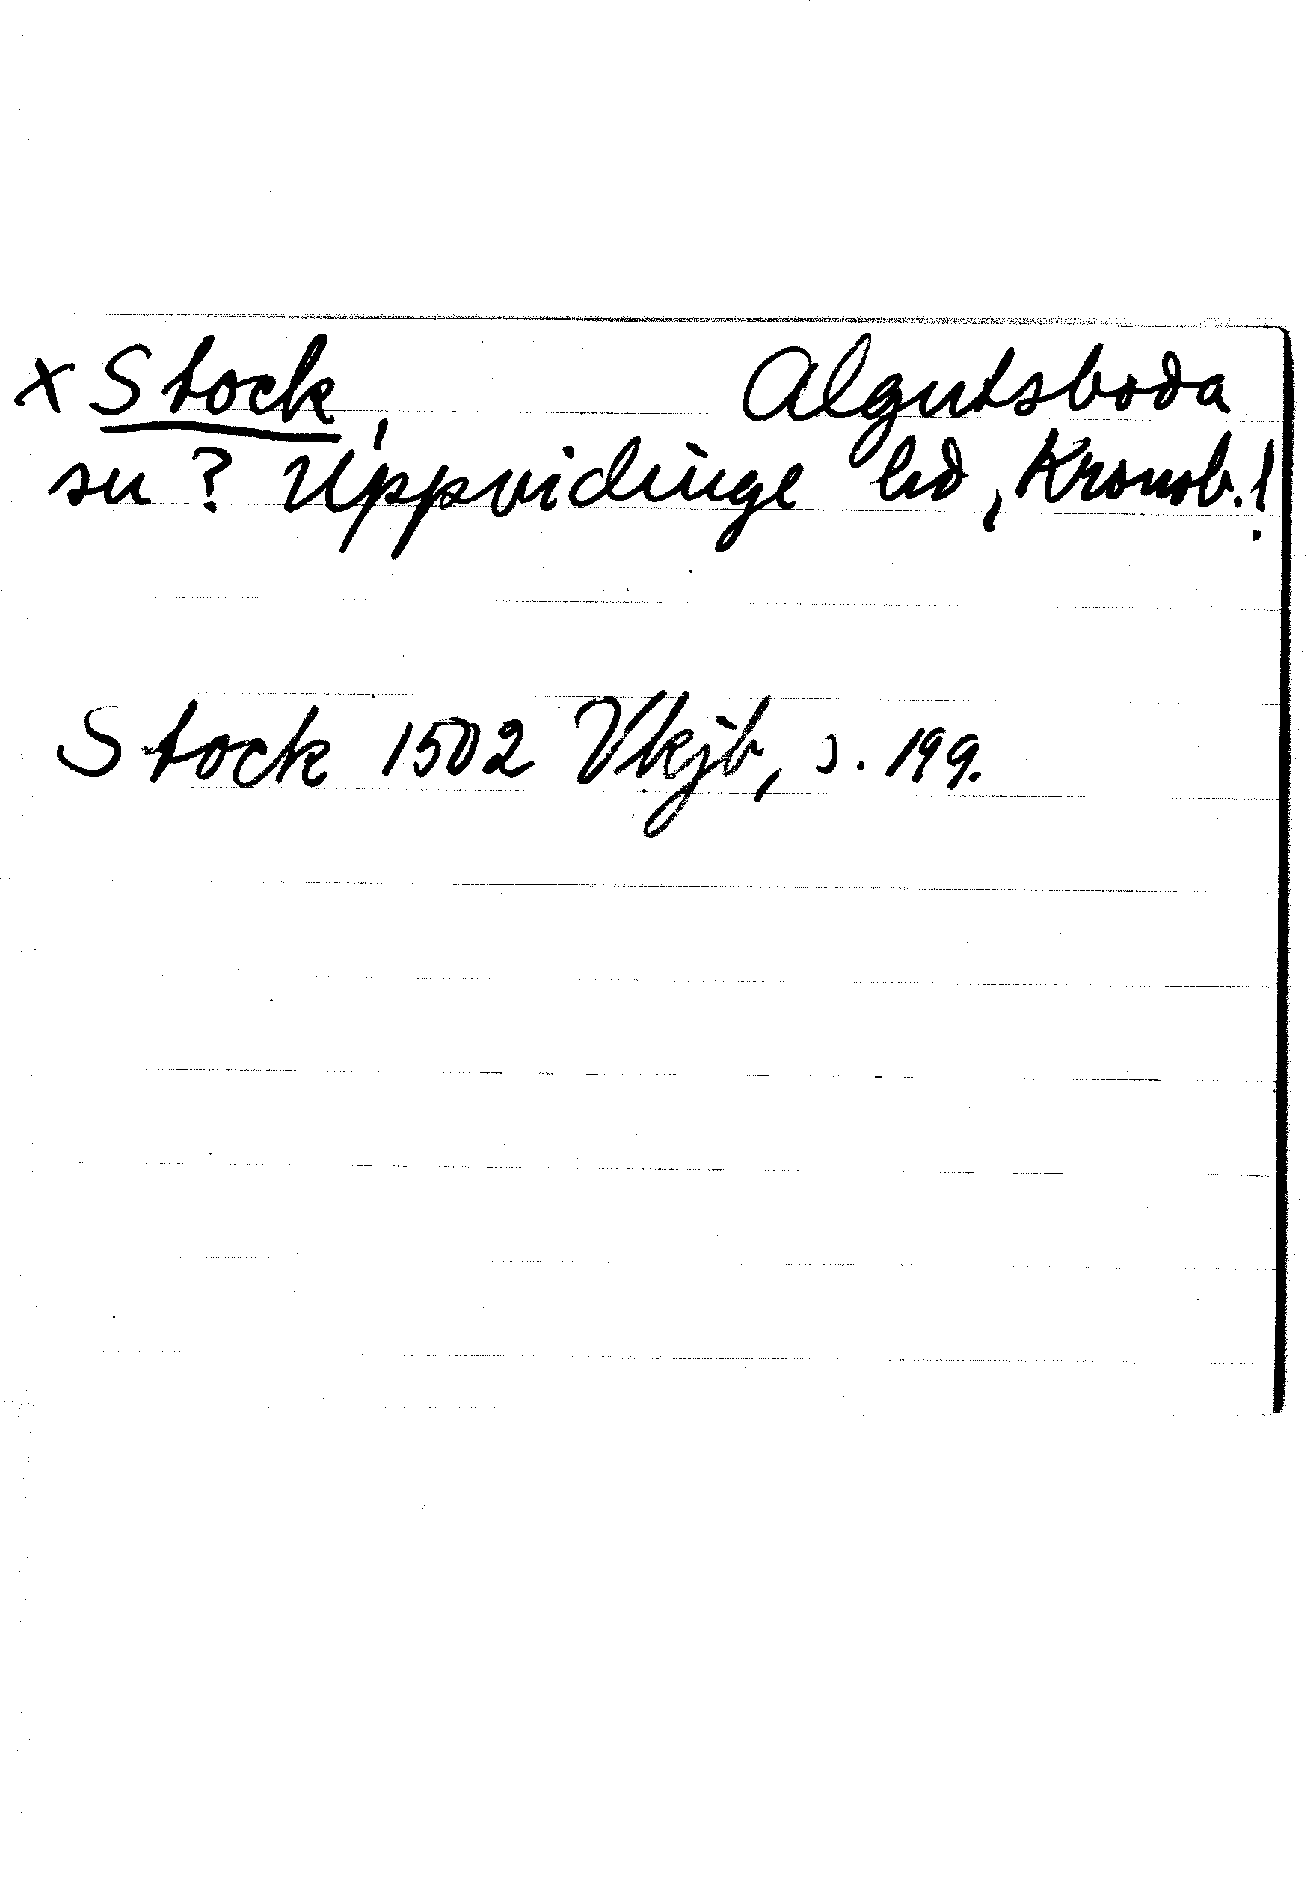 x Stock, Algutsboda
sn ? Uppvidinge hd, Kronob. l.
Stock 1502 Vkjb, s. 199.